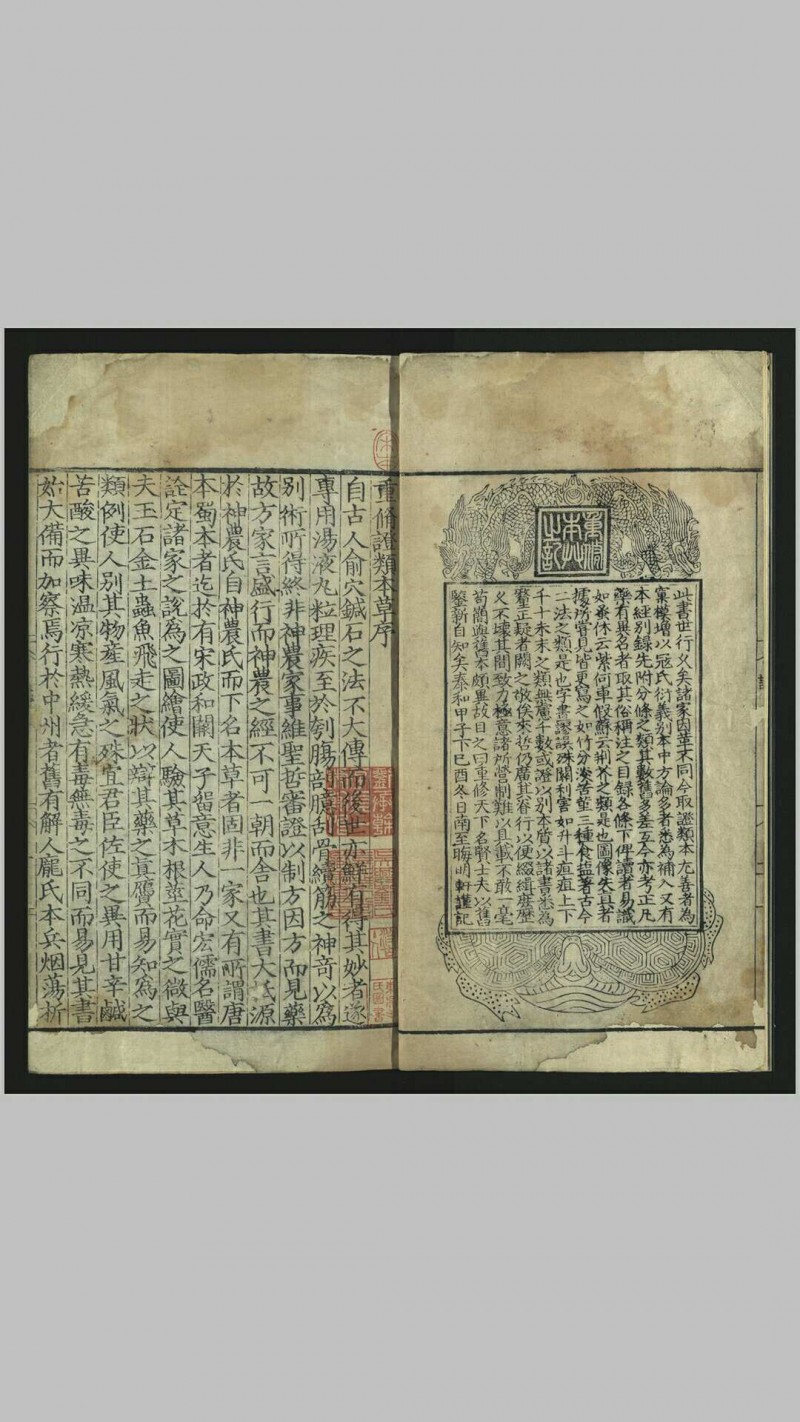 重修
本艸
之記
此書世行久矣諸家因革不同今取證類本尤善者為
窠模增以寇氏衍義別本中方論多者悉為補入又有
本經別錄先附分條之類其數舊多差互今亦考正凡
藥有異名者取其俗稱注之目録各條下俾讀者易識
如蚤休云紫何車假蘇云荊芥之類是也圖像失真者
據所嘗見皆更寫之如竹分淡苦菫三種食鹽著古今
二法之類是也字書謬誤殊關利害如升斗疽疸上下
千十未末之類無慮千數或證以別本質以諸書悉為
釐正疑者闕之敬俟來哲仍廣其脊行以便綴緝庶歷
久不壞其間致力極意諸所營制難以具載不敢一毫
苟簡與舊本頗異故目之曰重修天下名賢士夫以舊
鑒新自知矣泰和甲子下己酉冬日南至晦明軒謹記
重修證類本草序
自古人俞穴鍼石之法不大傳而後世亦鮮有得其妙者遂
專用湯液丸粒理疾至於刳腸剖臆刮骨續筋之神奇以為
別術所得終非神農家事維聖哲審證以制方因方而見藥
故方家言盛行而神農之經不可一朝而舍也其書大氐源
於神農氏自神農氏而下名本草者固非一家又有所謂唐
本蜀本者迄於有宋政和間天子留意生人乃命宏儒名醫
詮定諸家之說為之圖繪使人驗其草木根莖花實之微與
夫玉石金土蟲魚飛走之狀以辯其藥之真贗而易知為之
類例使人別其物產風氣之殊宜君臣佐使之異用甘辛鹹
苦酸之異味溫涼寒熱緩急有毒無毒之不同而易見其書
始大備而加察焉行於中州者舊有解人龐氏本兵烟蕩析